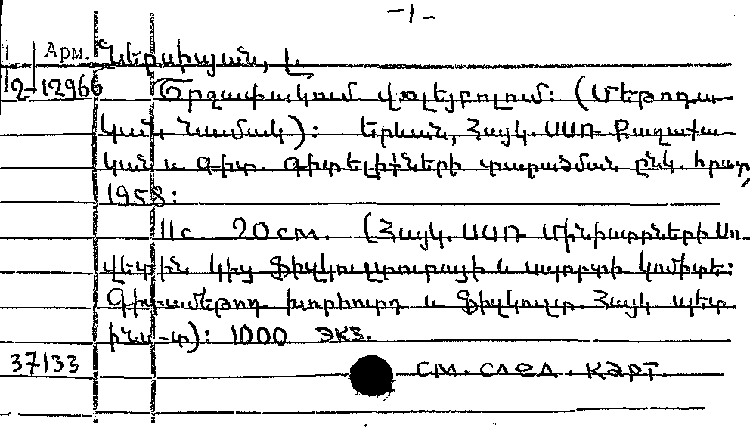 -1-
Арм. Ներսիսյան, Լ.
2-12966 Շրջափակում վոլեյբոլում: (Մեթոդա-
կան նամակ): Երևան, Հայկ. ՍՍՌ Քաղաքա-
կան և Գիտ. Գիտելիքների տարածման ընկ. հրատ,
1958:
11с. 20см. (Հայկ. ՍՍՌ Մինիստրների Սո-
վետին կից Ֆիզկուլտուրայի և սպորտի կոմիտե:
Գիտամեթոդ խորհուրդ և Ֆիզկուլտ. Հայկ պետ.
ինս-տ): 1000 экз.
37133 см. след. карт.